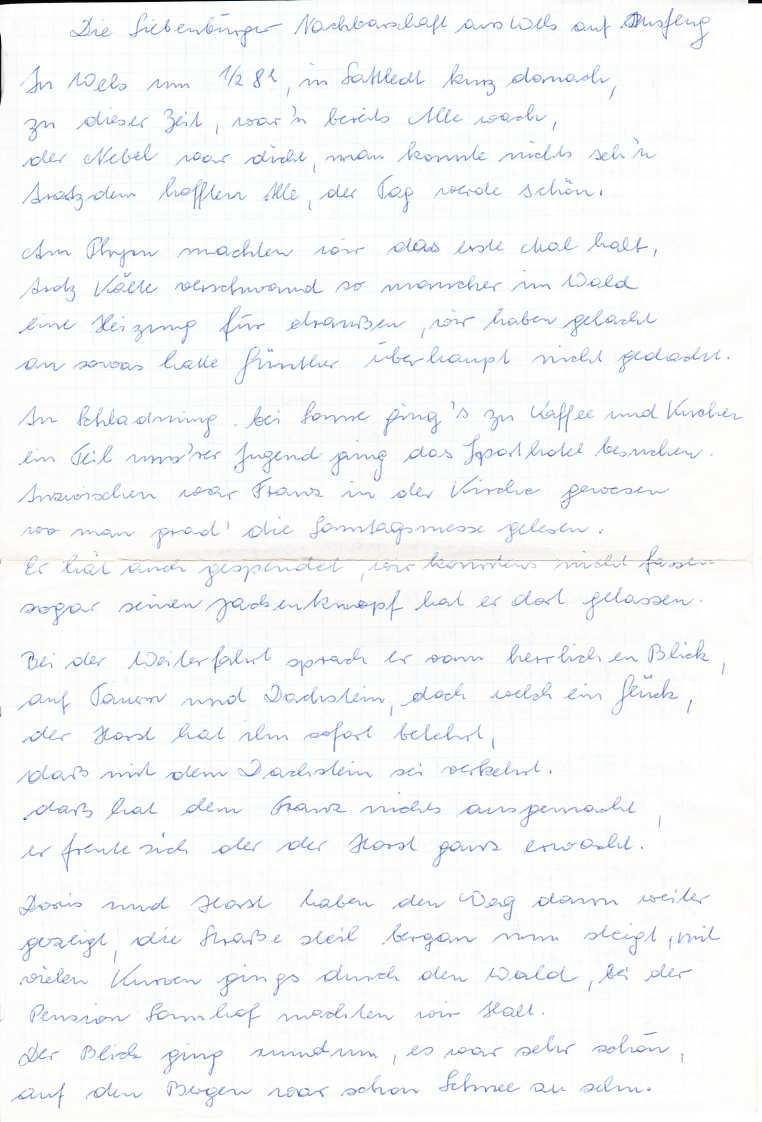 Die Siebenbürger Nachbarschaft aus Wels auf Ausflug
In Wels um 1/2 8h, in Sattledt kurz danach,
zu dieser Zeit, war'n bereits Alle wach,
der Nebel war dicht, man konnte nichts seh'n
trotzdem hofften Alle, der Tag werde schön.
Am Phyrn machten wir das erste Mal halt,
trotz Kälte verschwand so mancher im Wald
eine Heizung für draußen, wir haben gelacht
an sowas hatte Günther überhaupt nicht gedacht.
In Schladming bei Sonne ging's zu Kaffee und Kuchen
ein Teil uns'rer Jugend ging das Sporthotel besuchen.
Inzwischen war Franz in der Kirche gewesen
wo man grad' die Sonntagsmesse gelesen.
Er hat auch gespendet, wir konntens nicht fassen
sogar seinen Jackenknopf hat er dort gelassen.
Bei der Weiterfahrt sprach er vom herrlichen Blick,
auf Tauern und Dachstein, doch welch ein Glück,
der Horst hat ihn sofort belehrt,
daß mit dem Dachstein sei verkehrt.
daß hat dem Franz nichts ausgemacht,
er freute sich der der Horst ganz erwacht.
Doris und Horst haben den Weg dann weiter
gezeigt, die Straße steil bergan nun steigt, mit
vielen Kurven gings durch den Wald, bei der
Pension Sonnhof machten wir Halt.
Der Blick ging rundum, es war sehr schön,
auf den Bergen war schon Schnee zu sehn.